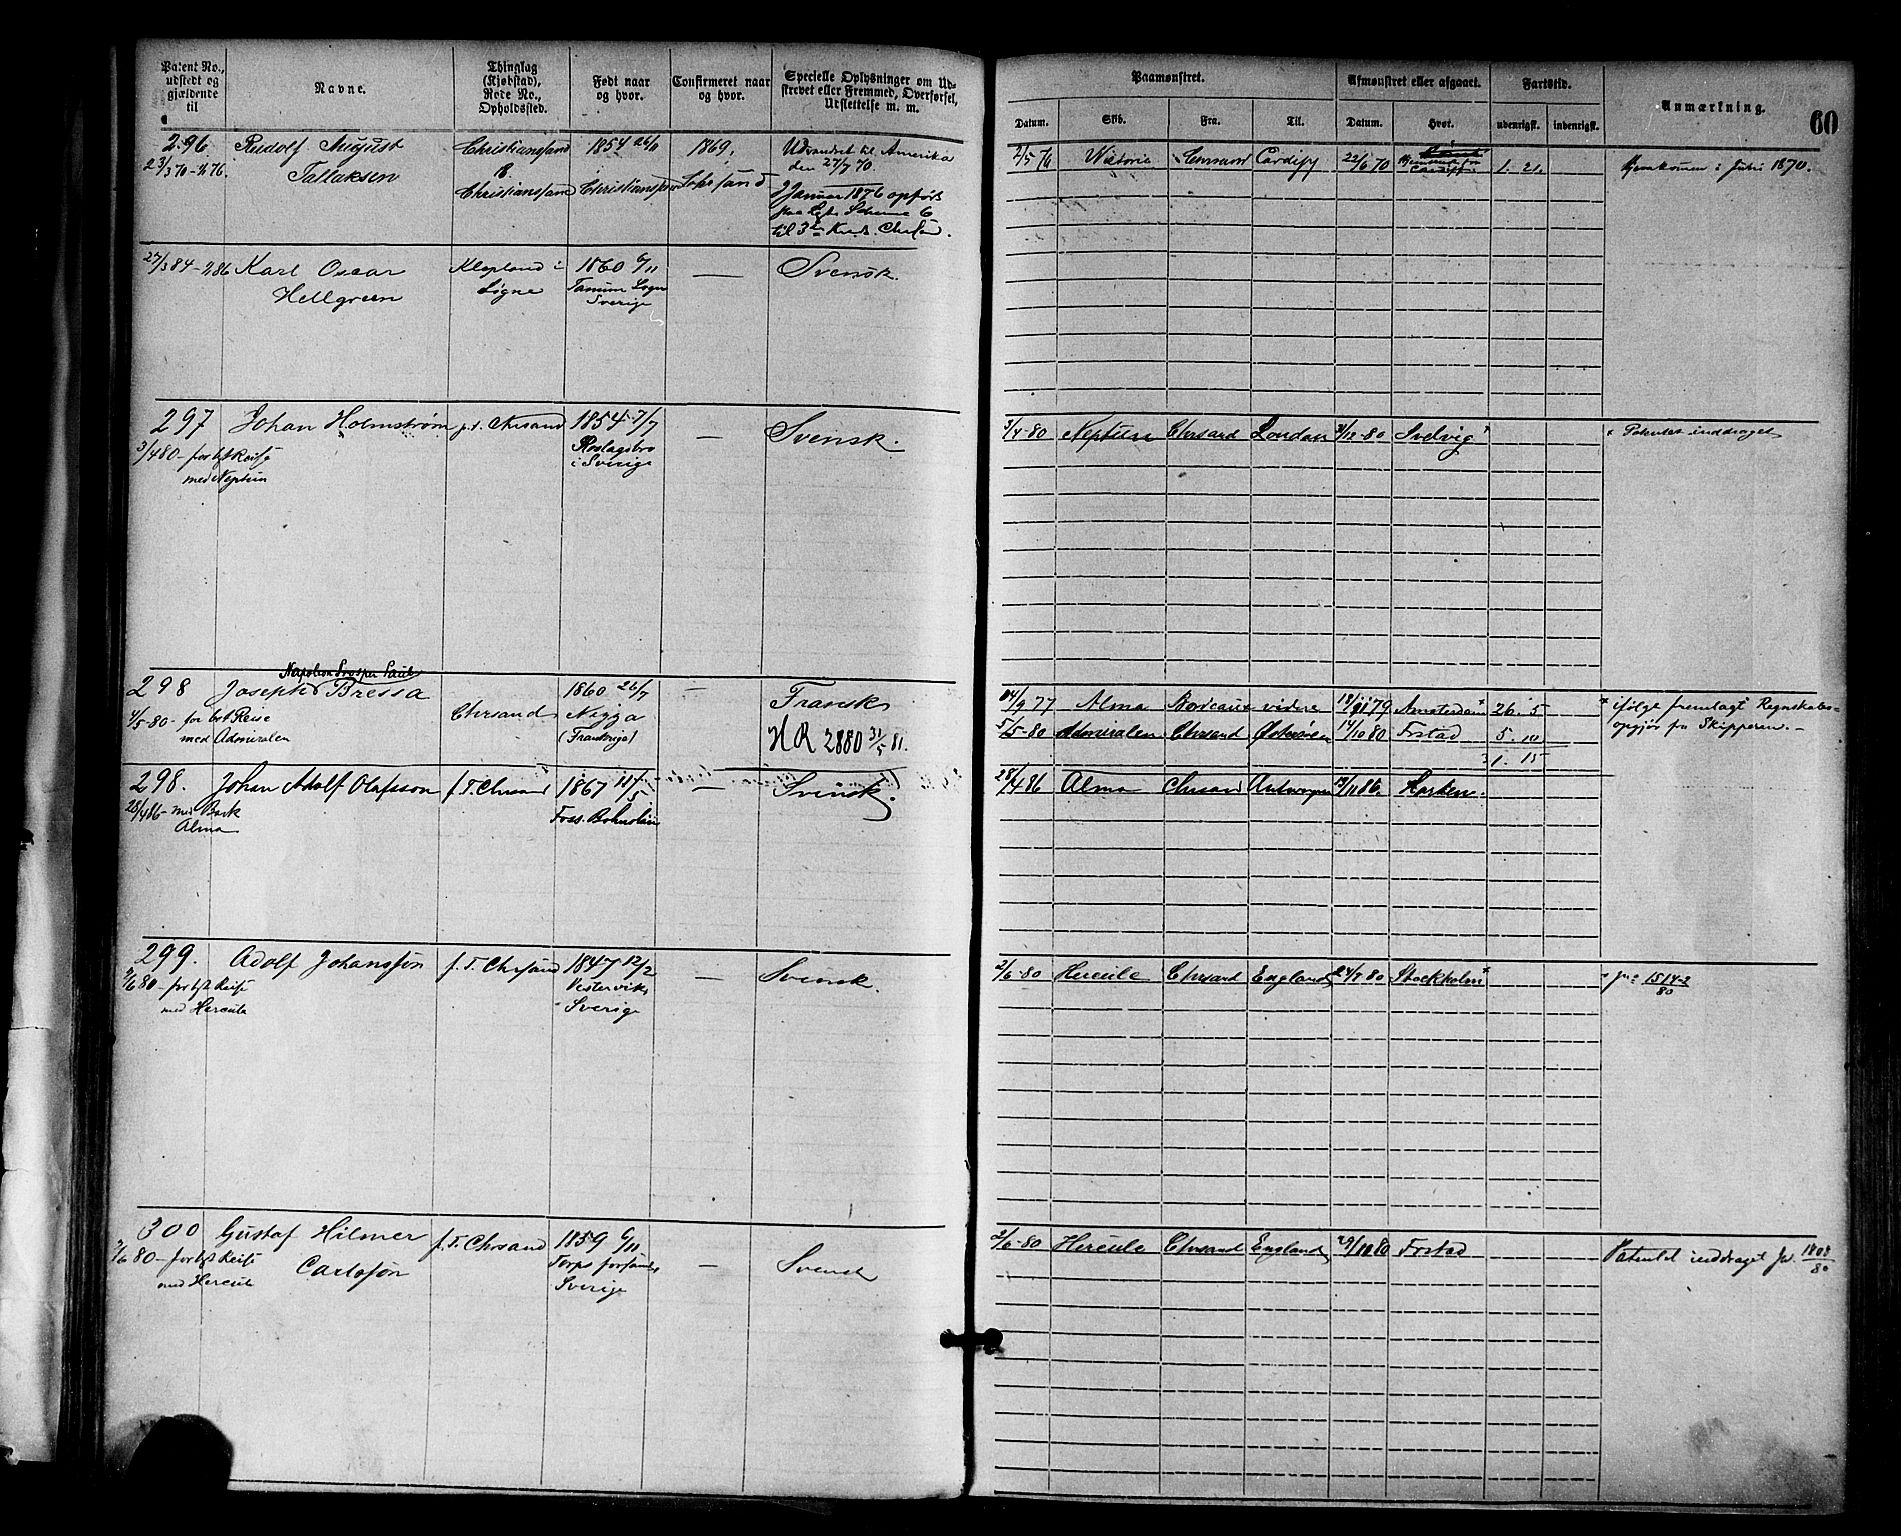 Patent No., udstedt og gjældende til
Navne.
Thinglag (Kjøbstad), Rode No., Opholdssted.
Født naar og hvor.
Confirmeret naar og hvor.
Specielle Oplysninger om Udstrevet eller Fremmed, Overførsel, Udslettelse m. m.
Paamønstret.
Afmønstret eller afgaaet.
Fartstid.
Anmærkning.
60
Datum.
Skib.
Fra.
Til.
Datum.
Hvor.
udenrigsk.
indenrigsk.
296
Rudolf August
Tallaksen
23/3 70 - 76
Christianssand
8.
Christianssand
1854 26/6
Christianssand
1869.
Udvandret til Amerika
den 27/7 70.
Januar 1876 opført
til 3die Kreds
2/5 76
Victoria
Cardiff
22/6 70
1. 21.
Hjemkommen i Juli 1870.
27/3 84 - 86
Karl Oscar
Hellgreen
Klepland i
Søgne
1860 6/11
Tanum Sogn
Sverige
—
Svensk.
297
3/4 80 - for bst Reise
med Neptun
Johan Holmstrøm
f. t. Chrsand
1854 7/7
Roslagsbro
i Sverige
—
Svensk.
3/4 - 80
Neptun
Chrsand
London
3/12 - 80
Svelvig *
* Patentet inddraget
298
4/5 80 - for bst Reise
med Admiralen
Napoleon Prosper Paul
Joseph Bressa
Chrsand
1860 26/7
Nizza
(Frankrige)
—
Fransk
HR 2880 31/5 81.
14/9 77
Alma
Bordeaux
videre
18/11 79
Amsterdam *
26. 5
* ifølge fremlagt Regnskabs-
opgjør fra Skipperen. -
5/5 - 80
Admiralen
Chrsand
Østersøen
14/10 80
Frstad
5. 10
31. 15
298.
28/4 86 - med Bark
Alma
Johan Adolf Olafsson
f. T. Chrsand
1867
Foss. Bohuslän
—
Svensk.
28/4 86
Alma
Chrsand
Antwerpen
86.
299.
2/6 80 - for bst Reise
med Hercule
Adolf Johansson
f. T. Chrsand
1847 12/2
Vestervik
Sverige
—
Svensk.
2/6 - 80
Hercule
Chrsand
England
24/8 80
Stockholm *
* Jr. 1514-2/80
300
2/6 80 - for bst Reise
med Hercule
Gustaf Hilmer
Carlsson
f. T. Chrsand
1859 6/11
Torps forsaml.
Sverige
—
Svensk
2/6 - 80
Hercule
Chrsand
England
29/10 80
Frstad
Patentet inddraget Jr. 1808/80